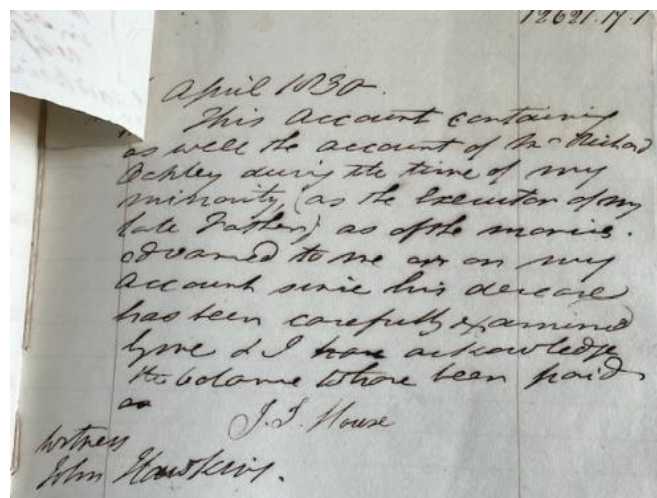 12621.17.1
April 1830.
This Account containing
as well the account of Mr Richard
Ochley during the time of my
minority (as the Executor of my
late Father) as of the monies
advanced to me or on my
account since his decease
has been carefully examined
by me & I acknowledge
the balance to have been paid
J. S. House
Witness
John Hawkins.